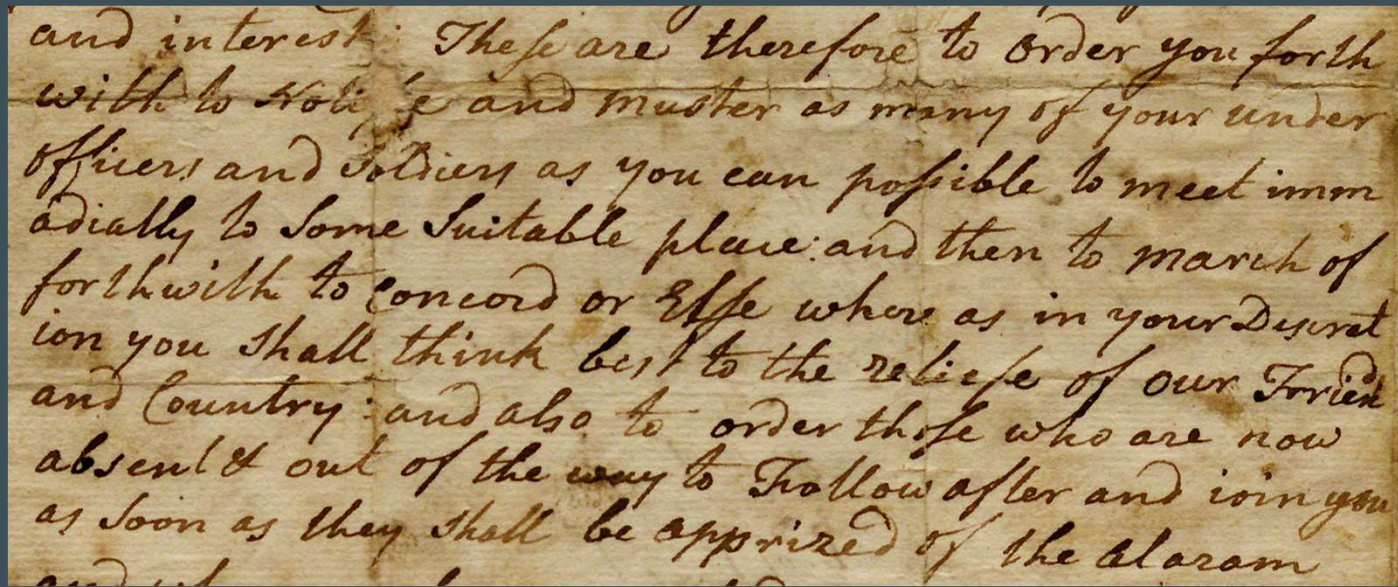 and interest: These are therefore to order you forth
with to Noti e and muster as many of your under
officers and soldiers as you can possible to meet imm
adially to Some Suitable place: and then to march of
forthwith to Concord or Else where as in your Descret
ion you shall think best to the reliefe of our Friend
and Country: and also to order those who are now
absent & out of the way to Follow after and ioin you
as Soon as they shall be apprized of the Alaram